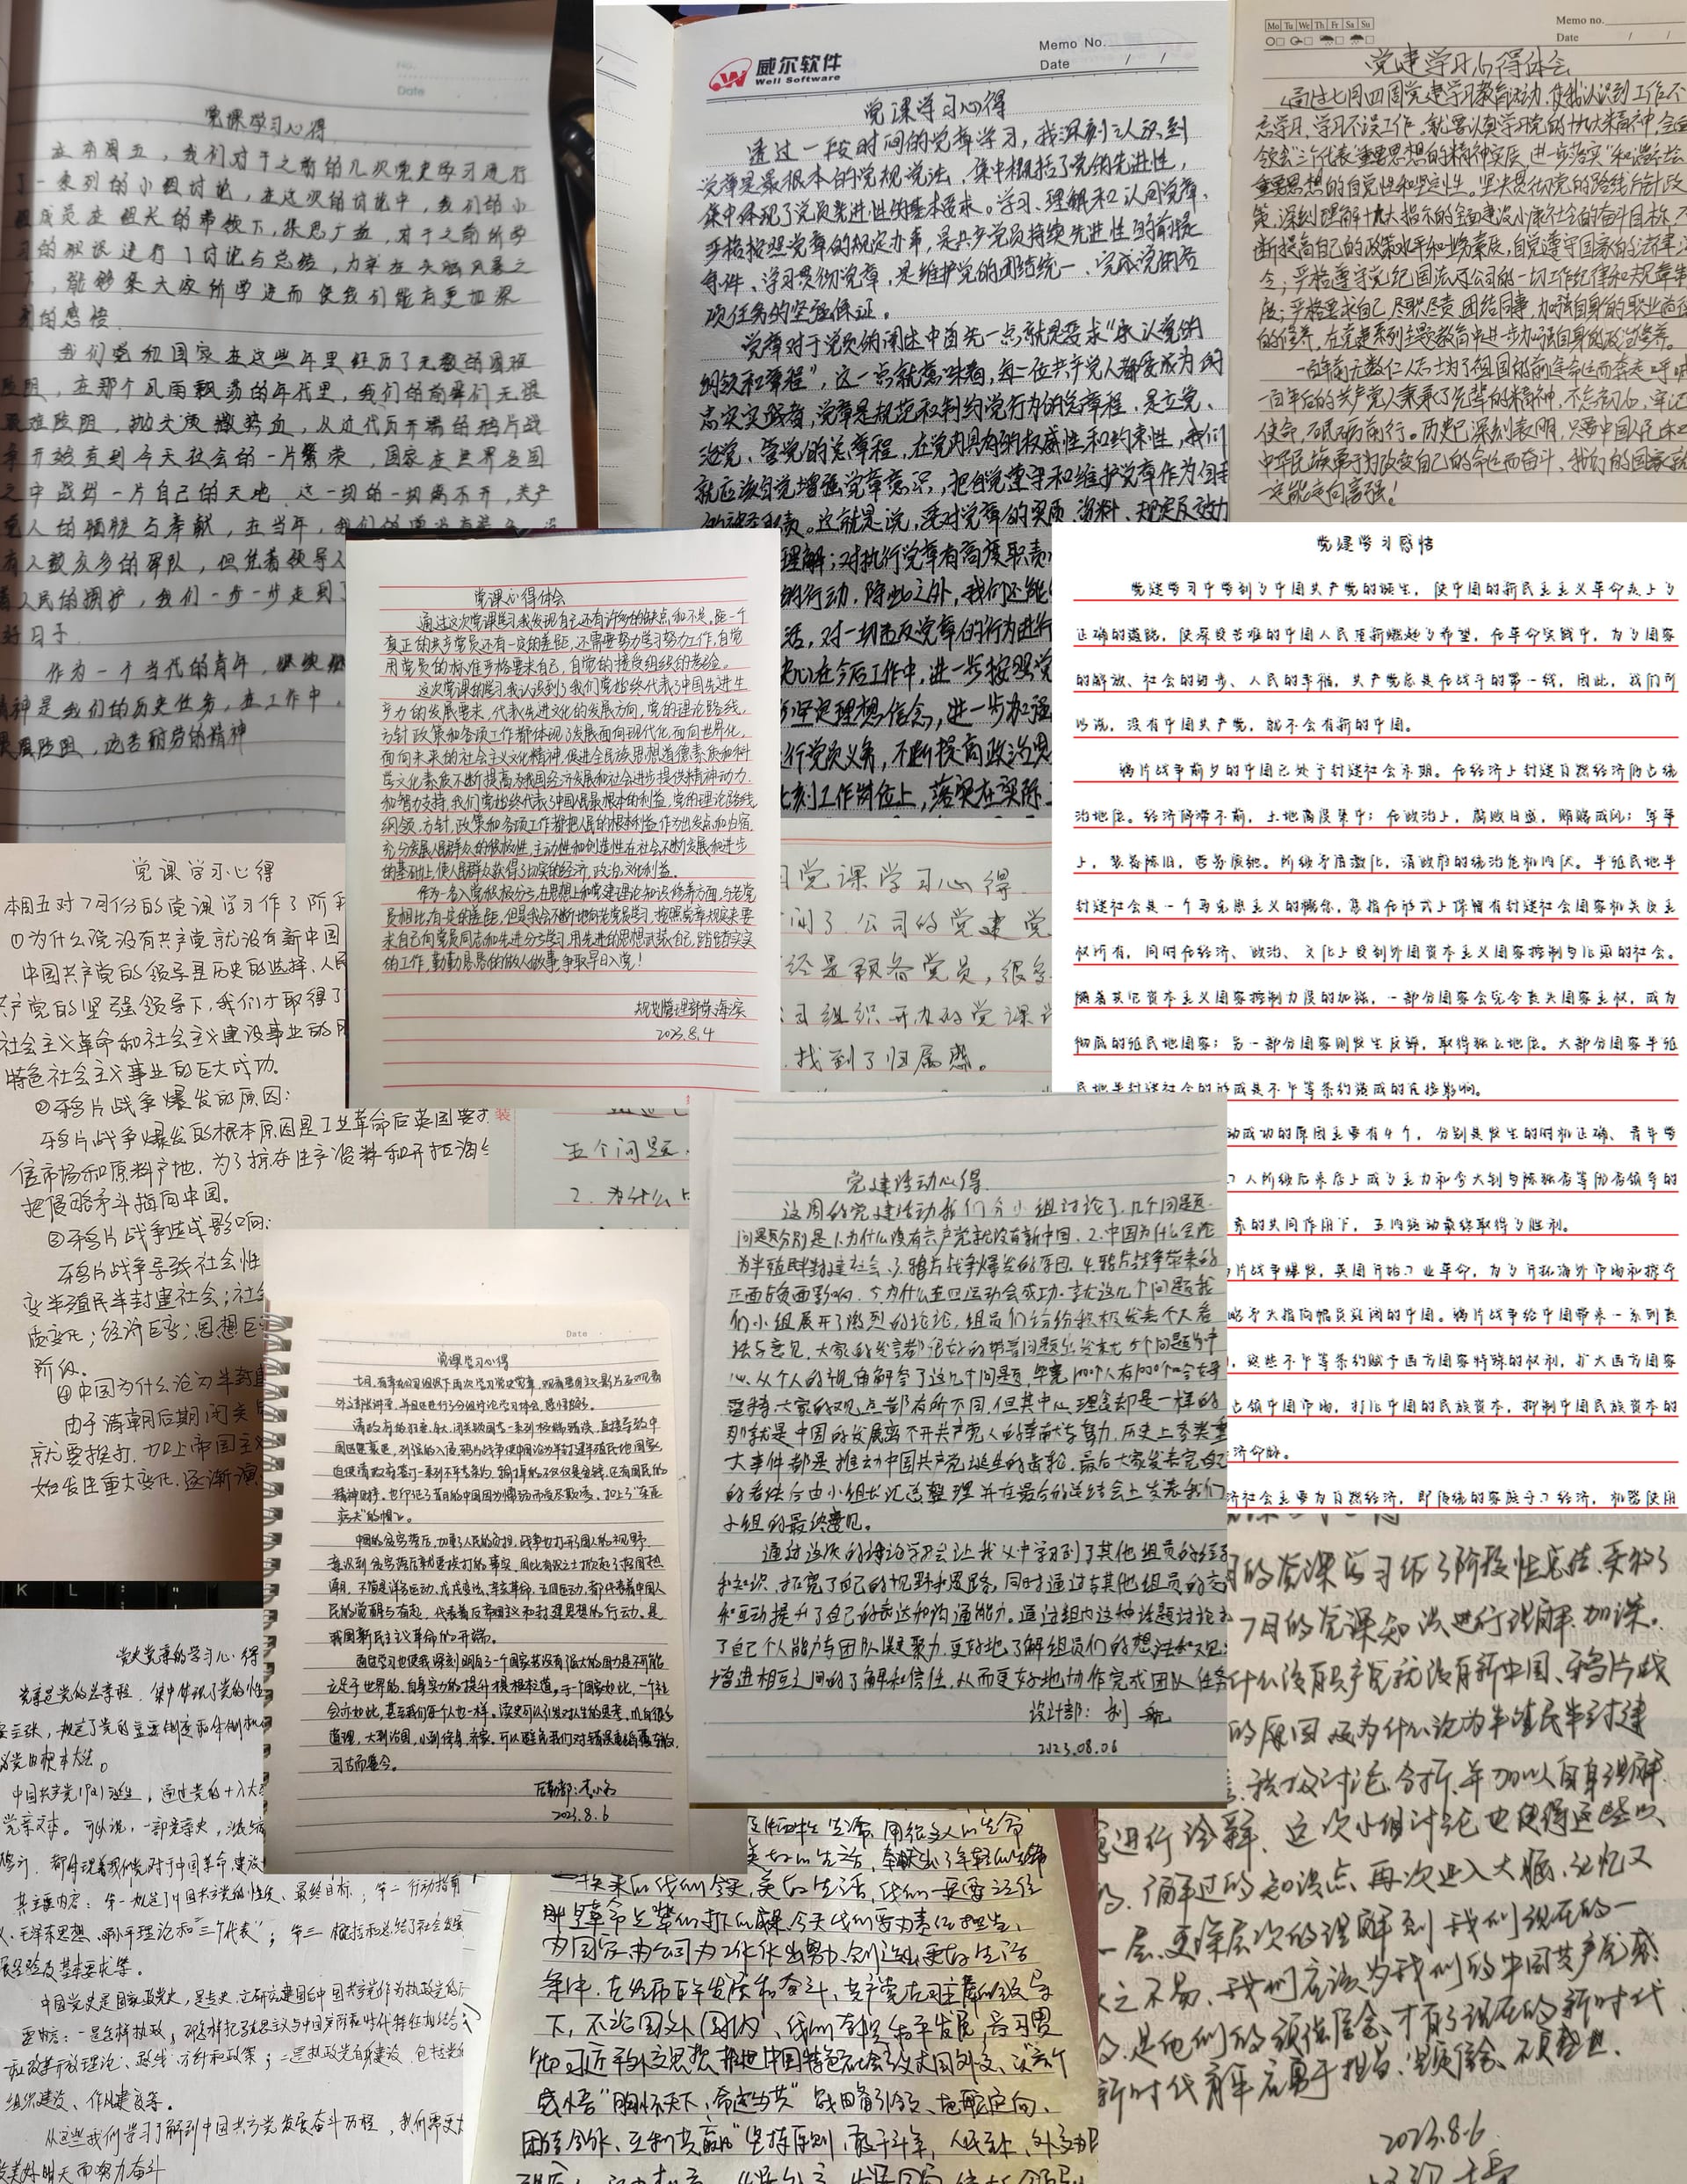 党课学习心得
在本周五，我们对于之前的几次党史学习进行
了一系列的小组讨论，在这次的讨论中，我们的小
组成员在组长的带领下，集思广益，对于之前所学
习的知识进行了讨论与总结，力求在头脑风暴之
下，能够集大家所学进而使我们能有更加深
刻的感悟
我们党和国家在这些年里经历了无数的困难
险阻，在那个风雨飘荡的年代里，我们的前辈们无惧
艰难险阻，抛头颅撒热血，从近代历开端的鸦片战
争开始直到今天社会的一片繁荣，国家在世界各国
之中战到一片自己的天地，这一切的一切离不开，共产
党人的牺牲与奉献，在当年，我们的
有人数众多的军队，但凭着领导人
着人民的拥护，我们一步一步走到了
好日子
作为一个当代的青年，
精神是我们的历史任务，在工作中，
艰险阻，吃苦耐劳的精神
威尔软件
Well Software
Memo No.
Date / /
党课学习心得
通过一段时间的党章学习，我深刻认识到
党章是最根本的党规党法，集中概括了党的先进性，
集中体现了党员先进性的基本要求。学习、理解和认同党章，
严格按照党章的规定办事，是共产党员持续先进性的前提
条件、学习贯彻党章，是维护党的团结统一、完成党的各
项任务的坚强保证。
党章对于党员的阐述中首先一点就是要求“承认党的
纲领和章程”，这一点就意味着，每一位共产党人都要成为的
忠实实践者，党章是规范和制约党行为的总章程，是立党、
治党、管党的总章程，在党内具有的权威性和约束性，我们
就应该自觉增强党章意识，把自觉遵守和维护党章作为自我
的神圣职责。这就是说，要对党章的实质、资料、规定及效力
理解；对执行党章有高度职责
的行动。除此之外，我们还能
活，对一切违反党章的行为进行
决心在今后工作中，进一步按照党
坚定理想信念，进一步加强
行党员义务，不断提高政治思
刻工作岗位上，落实在实际
Mo Tu We Th Fr Sa Su
Memo no.
Date / /
党建学习心得体会
通过七月四周党建学习教育活动，使我认识到工作不
忘学习，学习不误工作，就要认真学习党的十九大精神，全面
领会“三个代表”重要思想的精神实质，进一步落实“和谐社会
重要思想的自觉性和坚定性。坚决贯彻党的路线方针政
策，深刻理解十九大指示的全面建设小康社会的奋斗目标，不
断提高自己的政策水平和业务素质，自觉遵守国家的法律法
令；严格遵守党纪国法及公司的一切工作纪律和规章制
度；严格要求自己，尽职尽责，团结同事，加强自身的职业道德
的修养，在党建系列主题教育中进一步加强自身的政治修养。
一百年前无数仁人志士为了祖国的前途命运而奔走呼喊
一百年后的共产党人秉承了先辈的精神，不忘初心，牢记
使命，砥砺前行。历史已深刻表明，只要中国人民和
中华民族勇于为改变自己的命运而奋斗，我们的国家就
一定能走向富强！
党课心得体会
通过这次党课学习我发现自己还有许多的缺点和不足，距一个
真正的共产党员还有一定的差距，还需要努力学习努力工作，自觉
用党员的标准严格要求自己，自觉的接受组织的考验。
这次党课的学习，我认识到了我们党始终代表了中国先进生
产力的发展要求，代表先进文化的发展方向，党的理论路线，
方针政策和各项工作都体现了发展面向现代化，面向世界化，
面向未来的社会主义文化精神，促进全民族思想道德素质和科
学文化素质不断提高，为我国经济发展和社会进步提供精神动力
和智力支持，我们党始终代表了中国人民最根本的利益，党的理论路线
纲领、方针，政策和各项工作都把人民的根本利益作为出发点和归宿
充分发展人民群众的积极性，主动性和创造性，在社会不断发展和进步
的基础上，使人民群众获得了切实的经济，政治，文化利益。
作为一名入党积极分子，在思想上和党建理论知识修养方面，与老党
员相比有一定的差距，但是我会不断地向老党员学习，按照党章规定来要
求自己，向党员同志和先进分子学习，用先进的思想武装自己，踏踏实实
的工作，勤勤恳恳的做人做事，争取早日入党！
规划管理部 陈海滨
2023.8.4
党课学习感悟
党建学习中学到了中国共产党的诞生，使中国的新民主主义革命走上了
正确的道路，使深受苦难的中国人民重新燃起了希望，在革命实践中，为了国家
的解放、社会的进步、人民的幸福，共产党总是在战斗的第一线，因此，我们可
以说，没有中国共产党，就不会有新的中国。
鸦片战争前夕的中国已处于封建社会末期。在经济上封建自然经济仍占统
治地位。经济停滞不前，土地高度集中；在政治上，腐败日盛，贿赂成风；军事
上，装备陈旧，营务废弛。阶级矛盾激化，清政府的统治危机四伏。半殖民地半
封建社会是一个马克思主义的概念，意指在形式上保留有封建社会国家机关及主
权所有，同时在经济、政治、文化上受到外国资本主义国家控制与压迫的社会。
随着其它资本主义国家控制力度的加强，一部分国家会完全丧失国家主权，成为
彻底的殖民地国家；另一部分国家则发生反弹，取得独立地位。大部分国家半殖
民地半封建社会的形成是不平等条约造成的直接影响。
动成功的原因主要有4个，分别是发生的时机正确、青年学
工人阶级后来居上成了主力和李大钊与陈独秀等的领导的
素的共同作用下，五四运动最终取得了胜利。
片战争爆发，英国开始工业革命，为了开拓海外市场和掠夺
略矛头指向幅员辽阔的中国。鸦片战争给中国带来一系列丧
，这些不平等条约赋予西方国家特殊的权利，扩大西方国家
占领中国市场，打压中国的民族资本，抑制中国民族资本的
济命脉。
济社会主要为自然经济，即传统的家庭手工经济，机器使用
党课学习心得
本周五对7月份的党课学习作了阶
①为什么说没有共产党就没有新中国
中国共产党的领导是历史的选择、人民
产党的坚强领导下，我们才取得了
社会主义革命和社会主义建设事业的
特色社会主义事业的巨大成功。
②鸦片战争爆发的原因：
鸦片战争爆发的根本原因是工业革命后英国要
信市场和原料产地，为了掠夺生产资料和开拓海
把侵略矛头指向中国。
③鸦片战争造成影响：
鸦片战争导致社会性
变半殖民半封建社会；社会
质变化；经济巨变；思想巨
阶段。
④中国为什么沦为半封建
由于清朝后期闭关
就要挨打，加上帝国主义
始发生重大变化，逐渐演
党课学习心得
问了公司的党建党
经是预备党员，很多
司组织开办的党课学
找到了归属感。
装
五个问题
2、为什么
党建活动心得
这周的党建活动我们分小组讨论了几个问题。
问题分别是1.为什么没有共产党就没有新中国。2.中国为什么会沦
为半殖民半封建社会。3.鸦片战争爆发的原因。4.鸦片战争带来的
正面与负面影响。5.为什么五四运动会成功。就这几个问题我
们小组展开了激烈的讨论，组员们纷纷积极发表个人看
法与意见。大家的发言都很好的带着问题出发在5个问题为中
心，从个人的视角解答了这几个问题，毕竟1000个人有1000个哈姆
雷特，大家的观点都有所不同，但其中心理念却是一样的
那就是中国的发展离不开共产党人的奉献与努力，历史上各类重
大事件都是推动中国共产党诞生的齿轮，最后大家发表完自己
的看法会由小组长汇总整理并在最后的总结会上发表我们
小组的最终意见。
通过这次的讨论学习会让我从中学习到了其他组员的经验
和知识，拓宽了自己的视野和思路，同时通过与其他组员的交
和互动提升了自己的表达和沟通能力。通过组内这种话题讨论
了自己个人能力与团队凝聚力，更好地了解组员们的想法和观
增进相互之间的了解和信任，从而更好地协作完成团队任务
设计部：刘
2023.08.06
Date
党课学习心得
七月，有幸在公司组织下再次学习党史党章，观看
外交部长讲座，并且还进行了分组讨论学习体会，感悟颇多。
清政府的狂妄自大，闭关锁国等一系列极端错误，直接导致中
国逐渐衰退，列强的入侵，鸦片战争使中国沦为半封建半殖民地国家，
迫使清政府签订一系列不平等条约，输掉的不仅仅是金钱，还有国民的
精神信仰，也印证了昔日的中国因为懦弱而受尽欺凌，扣上了“东亚
病夫”的帽子。
中国的贫穷落后，加重了人民的负担，战争也打开了国人的视野，
意识到贫穷落后就要挨打的事实，因此有识之士掀起了救国热
潮，不管是洋务运动、戊戌变法、辛亥革命、五四运动，都代表着中国人
民的觉醒与奋起，代表着反帝国主义和封建思想的行动，是
我国新民主主义革命的开端。
通过学习也使我深刻明白了一个国家若没有强大的国力是不可能
立足于世界的，自身实力的提升，提根本之道，于一个国家如此，一个社
会亦如此，甚至我们每个人也一样。读史可以引发对人生的思考，明白很多
道理，大到治国，小到修身、齐家，可以避免我们对错误重蹈覆辙，
习古而鉴今。
后勤部：
2023.8.6
K L ; "
党史党章的学习心得
党章是党的总章程，集中体现了党的性
主张，规定了党的重要制度和体制机
党的根本大法。
中国共产党1921诞生，通过党的十八大
党章文本。可以说，一部党章史，
修订，都体现着我们党对于中国革命、建设
其主要内容：第一规定了中国共产党的性质、最终目标；第二行动指南
、毛泽东思想、邓小平理论和“三个代表”；第三概括和总结了社会发
展经验及基本要求等。
中国党史是国家政党史，是专史，它研究建国后中国共产党作为执政党的
要内容：一是怎样执政，即怎样把马克思主义与中国实际和时代特征相结合
和改革开放理论、路线、方针和政策；二是执政党自身建设，包括党的
组织建设、作风建设等。
从这些我们学习了解到中国共产党发展奋斗历程，我们需更加
美好明天而努力奋斗
生活，用很多人的生命
美好的生活，奉献出了年轻的生命
换来的我们今天美好生活，我们一定要记住
那是革命先辈们打下的成果，今天我们要为责任担当，
为国家为公司为工作作出努力，创造出更好的生活
条件，在经历百年发展和奋斗，共产党在习主席的领导
下，不论国外（国内），我们都在和平发展，
习近平外交思想，推进中国特色社会主义大国外交，谈六个
感悟“胸怀天下，命运与共”战略引领、
团结合作，互利共赢”坚持原则，敢于斗争，人民至上，外交为民
的党课学习作了阶段性总结，我将
7月的党课知识进行理解加深。
什么没有共产党就没有新中国、鸦片战
的原因及为什么沦为半殖民半封建
，积极讨论、分析，并加以自身理解
进行诠释，这次小组讨论也使得这些以
的，了解过的知识点再次进入大脑，记忆又
一层，更深层次的理解到我们现在的一
之不易，我们应该为我们的中国共产党感
是他们的
才有了现在的新时代，
新时代青年应勇于担当
不负盛世。
2023.8.6